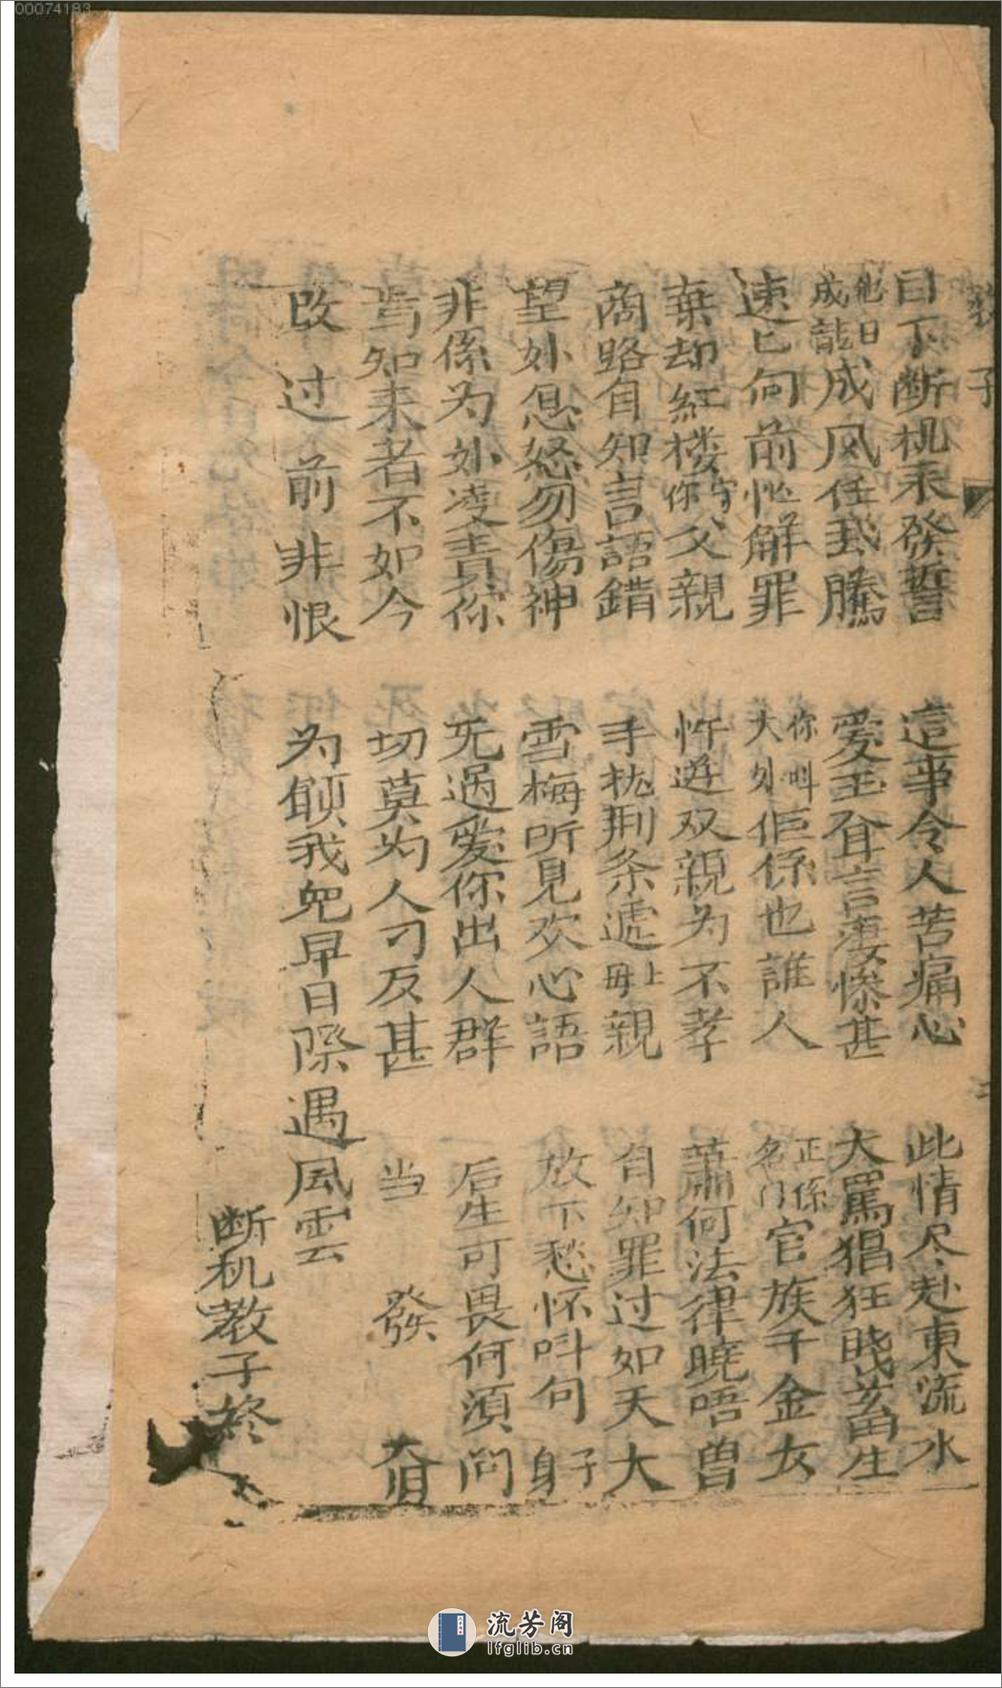 00074183
教子
目下断机来發誓
這事令人苦痛心
此情尽赴東流水
他日成龍成风任我騰
爱玉耸言凄慘甚
大罵猖狂賤畜生
速已向前忙解罪
你叫大外佢係也誰人
正係名门官族千金女
棄却紅楼你守父親
忤逆双親为不孝
蕭何法律曉唔曽
商路自知言語錯
手执荆条遞上毋親
自知罪过如天大
望外息怒勿傷神
雪梅听見欢心語
放下愁怀叫句子身
非係为外凌責你
无過爱你出人群
后生可畏何須问
焉知来者不如今
切莫为人刁反甚
当發奋
改过前非恨
为願我兒早日際遇风雲
断机教子終
流芳阁
lfglib.cn